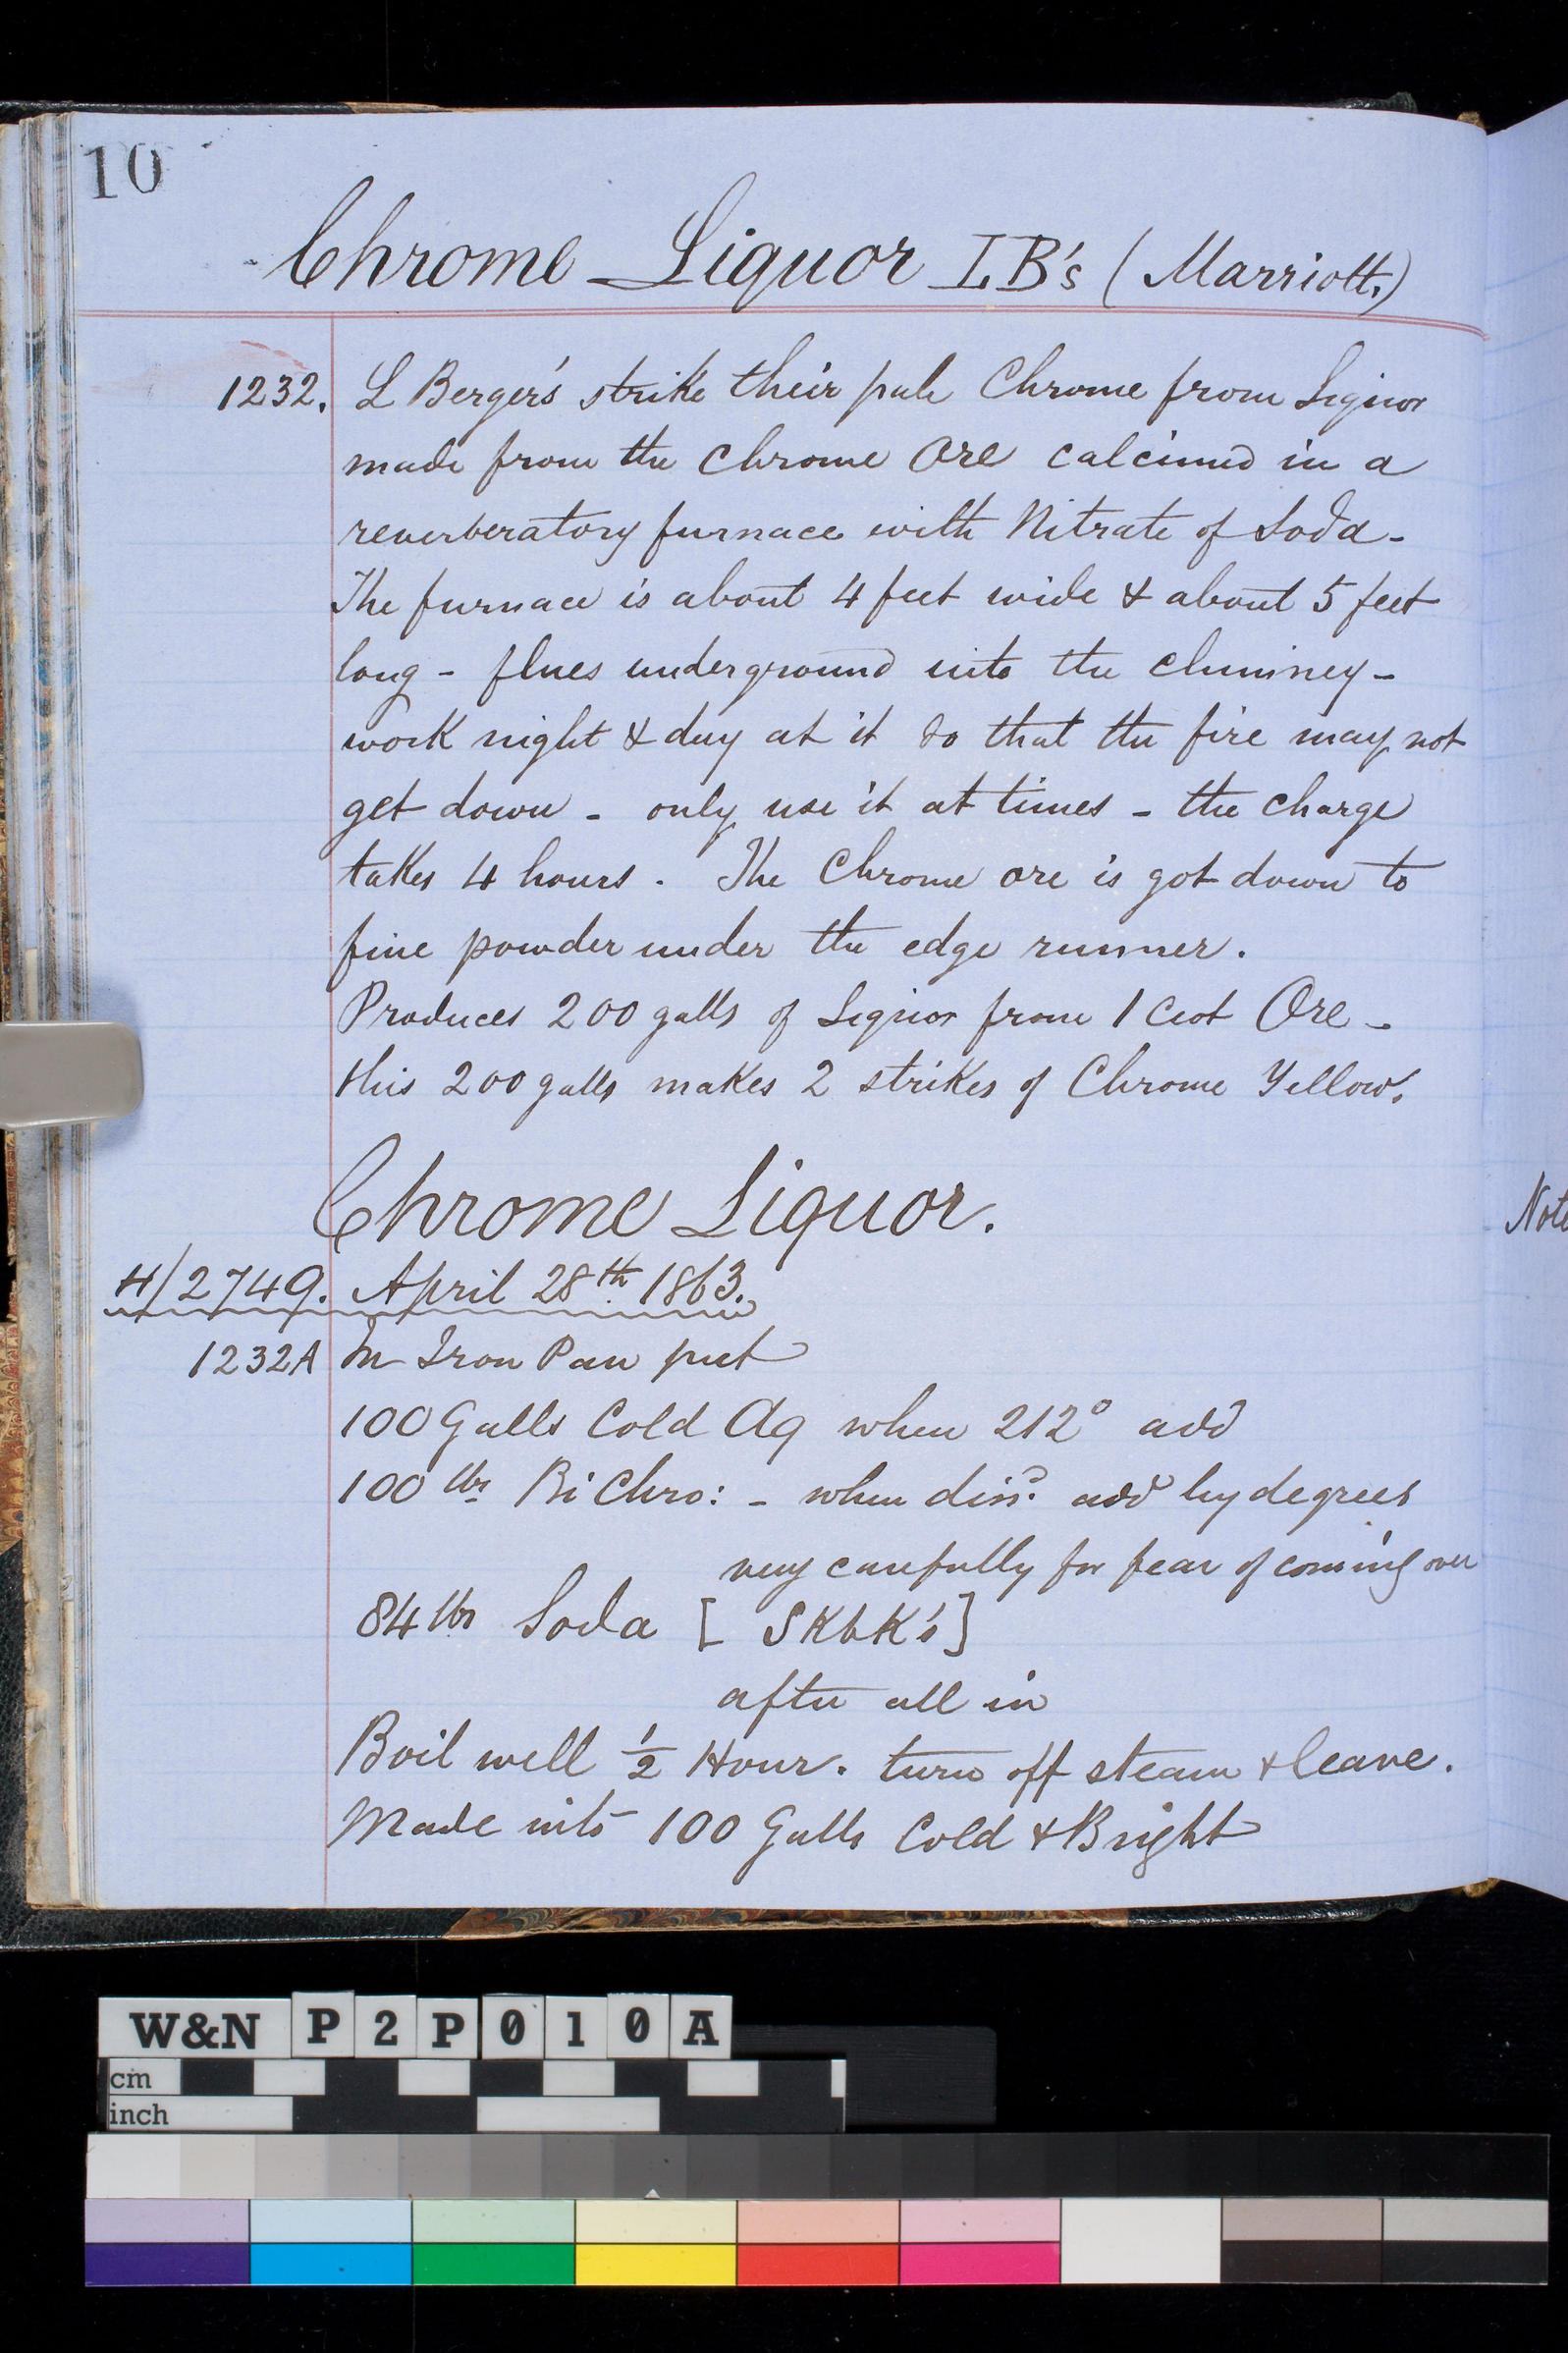 10
Chrome Liquor L.B's (Marriott.)
1232. L Berger's strike their pale Chrome from Liquor
made from the Chrome Ore calcined in a
reverberatory furnace with Nitrate of Soda -
The furnace is about 4 feet wide & about 5 feet
long - flues underground into the chimney -
work night & day at it so that the fire may not
get down - only use it at times - the charge
takes 4 hours. The Chrome ore is got down to
fine powder under the edge runner.
Produces 200 galls of Liquor from 1 Cwt Ore -
this 200 galls makes 2 strikes of Chrome Yellow.
Chrome Liquor.
H/2749. April 28th 1863.
1232A In Iron Pan put
100 Galls Cold Aq when 212° add
100 lbs Bi Chro: - when dissd. add by degrees
very carefully for fear of coming over
84 lbs Soda [ SKbK's ]
after all in
Boil well ½ Hour. turn off steam & leave.
Made into 100 Galls Cold & Bright
Note
W&N P2P010A
cm
inch